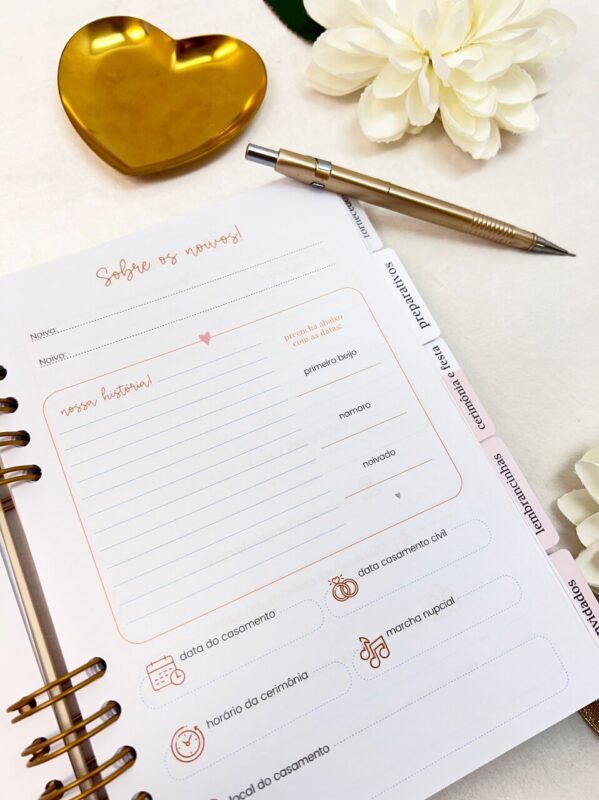 Sobre os noivos!
Noiva:
Noivo:
nossa história!
preencha abaixo
com as datas:
primeiro beijo
namoro
noivado
data do casamento
data casamento civil
horário da cerimônia
marcha nupcial
local do casamento
preparativos
cerimônia e festa
lembrancinhas
nvidados